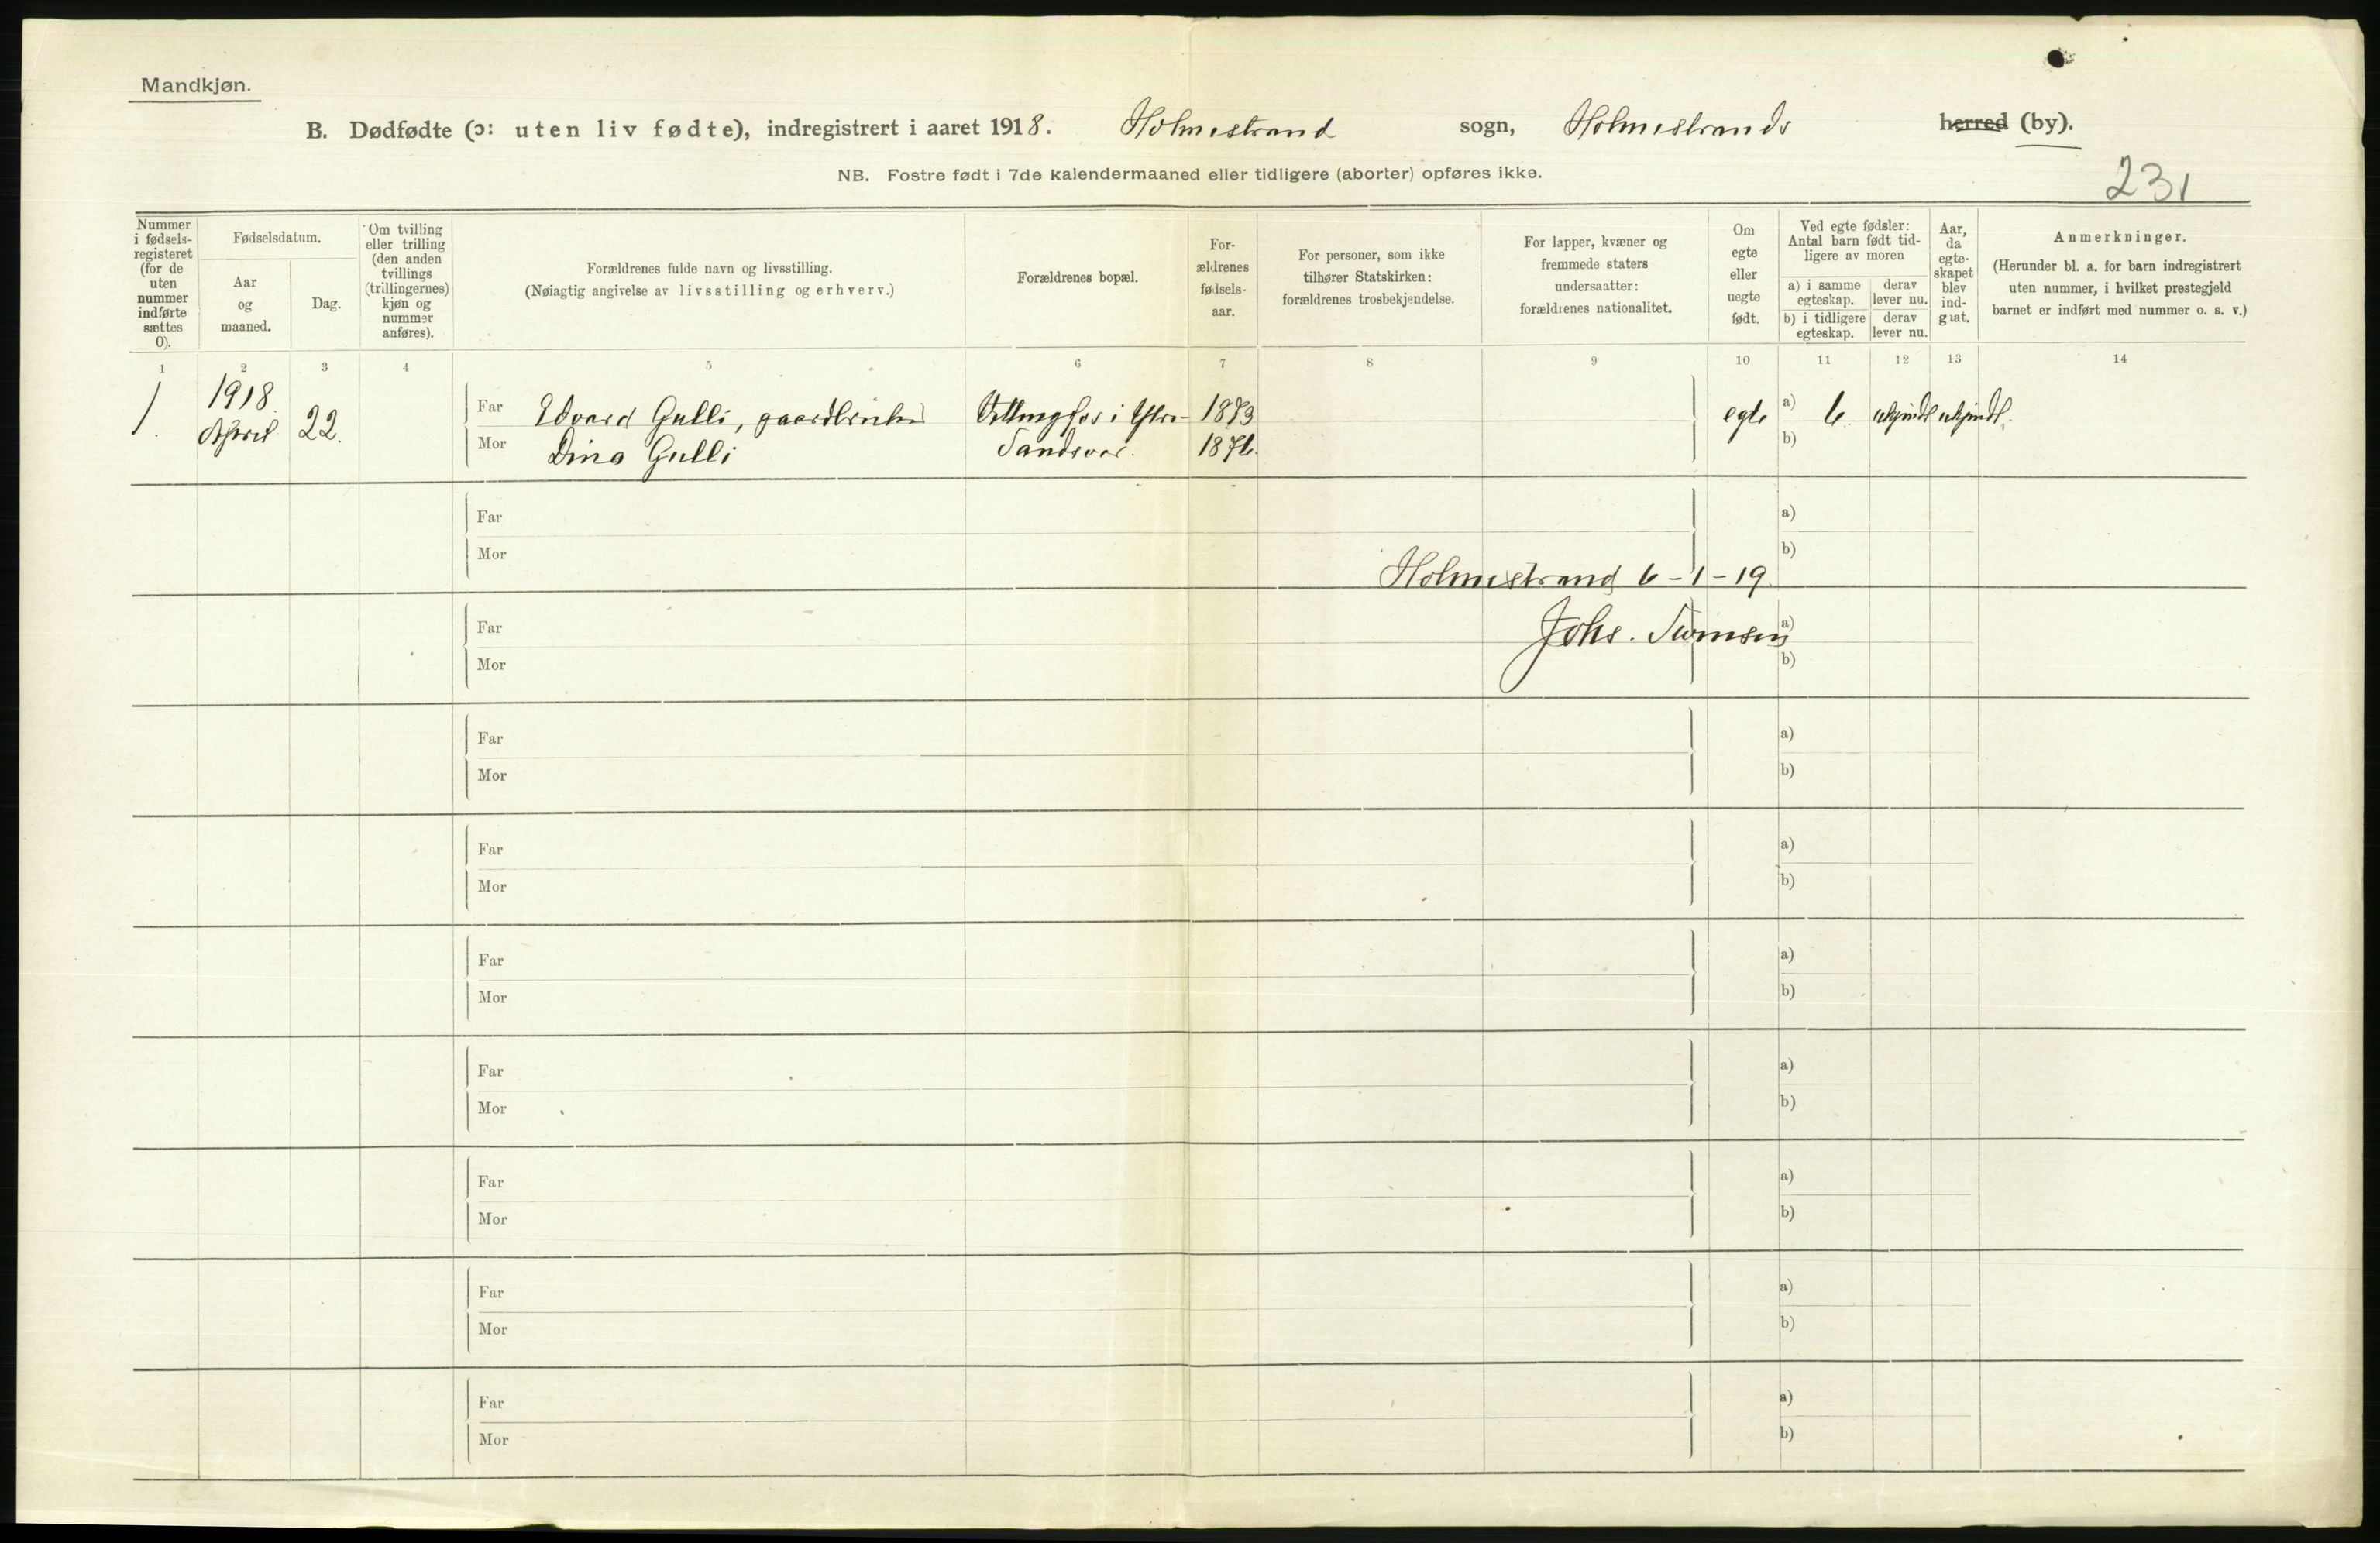 Mandkjøn.
B. Dødfødte (ɔ: uten liv fødte), indregistrert i aaret 1918. Holmestrand sogn, Holmestrands herred (by).
NB. Fostre født i 7de kalendermaaned eller tidligere (aborter) opføres ikke.
231
Nummer i fødsels-registeret (for de uten nummer indførte sættes 0).
Fødselsdatum.
Aar og maaned.
Dag.
Om tvilling eller trilling (den anden tvillings (trillingernes) kjøn og nummer anføres).
Forældrenes fulde navn og livsstilling.
(Nøiagtig angivelse av livsstilling og erhverv.)
Forældrenes bopæl.
For-ældrenes fødsels-aar.
For personer, som ikke tilhører Statskirken: forældrenes trosbekjendelse.
For lapper, kvæner og fremmede staters undersaatter: forældrenes nationalitet.
Om egte eller uegte født.
Ved egte fødsler: Antal barn født tid-ligere av moren
a) i samme egteskap. derav lever nu.
b) i tidligere egteskap. derav lever nu.
Aar, da egte-skapet blev ind-gaat.
Anmerkninger.
(Herunder bl. a. for barn indregistrert uten nummer, i hvilket prestegjeld barnet er indført med nummer o. s. v.)
1 2 3 4 5 6 7 8 9 10 11 12 13 14
1. 1918 April 22. Far Edvard Gulli, gaardbruker 1873 egte a) 6 ukjendt ukjendt.
Mor Dina Gulli Sandsvær. 1876. b)
Far a)
Mor b)
Holmestrand 6-1-19
Far Johs. a)
Mor b)
Far a)
Mor b)
Far a)
Mor b)
Far a)
Mor b)
Far a)
Mor b)
Far a)
Mor b)
Far a)
Mor b)
Far a)
Mor b)